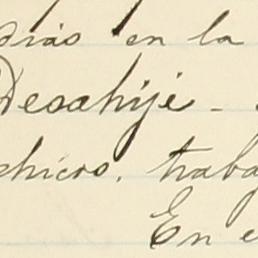 dias en la
Desahije -
chicos. traba
En e